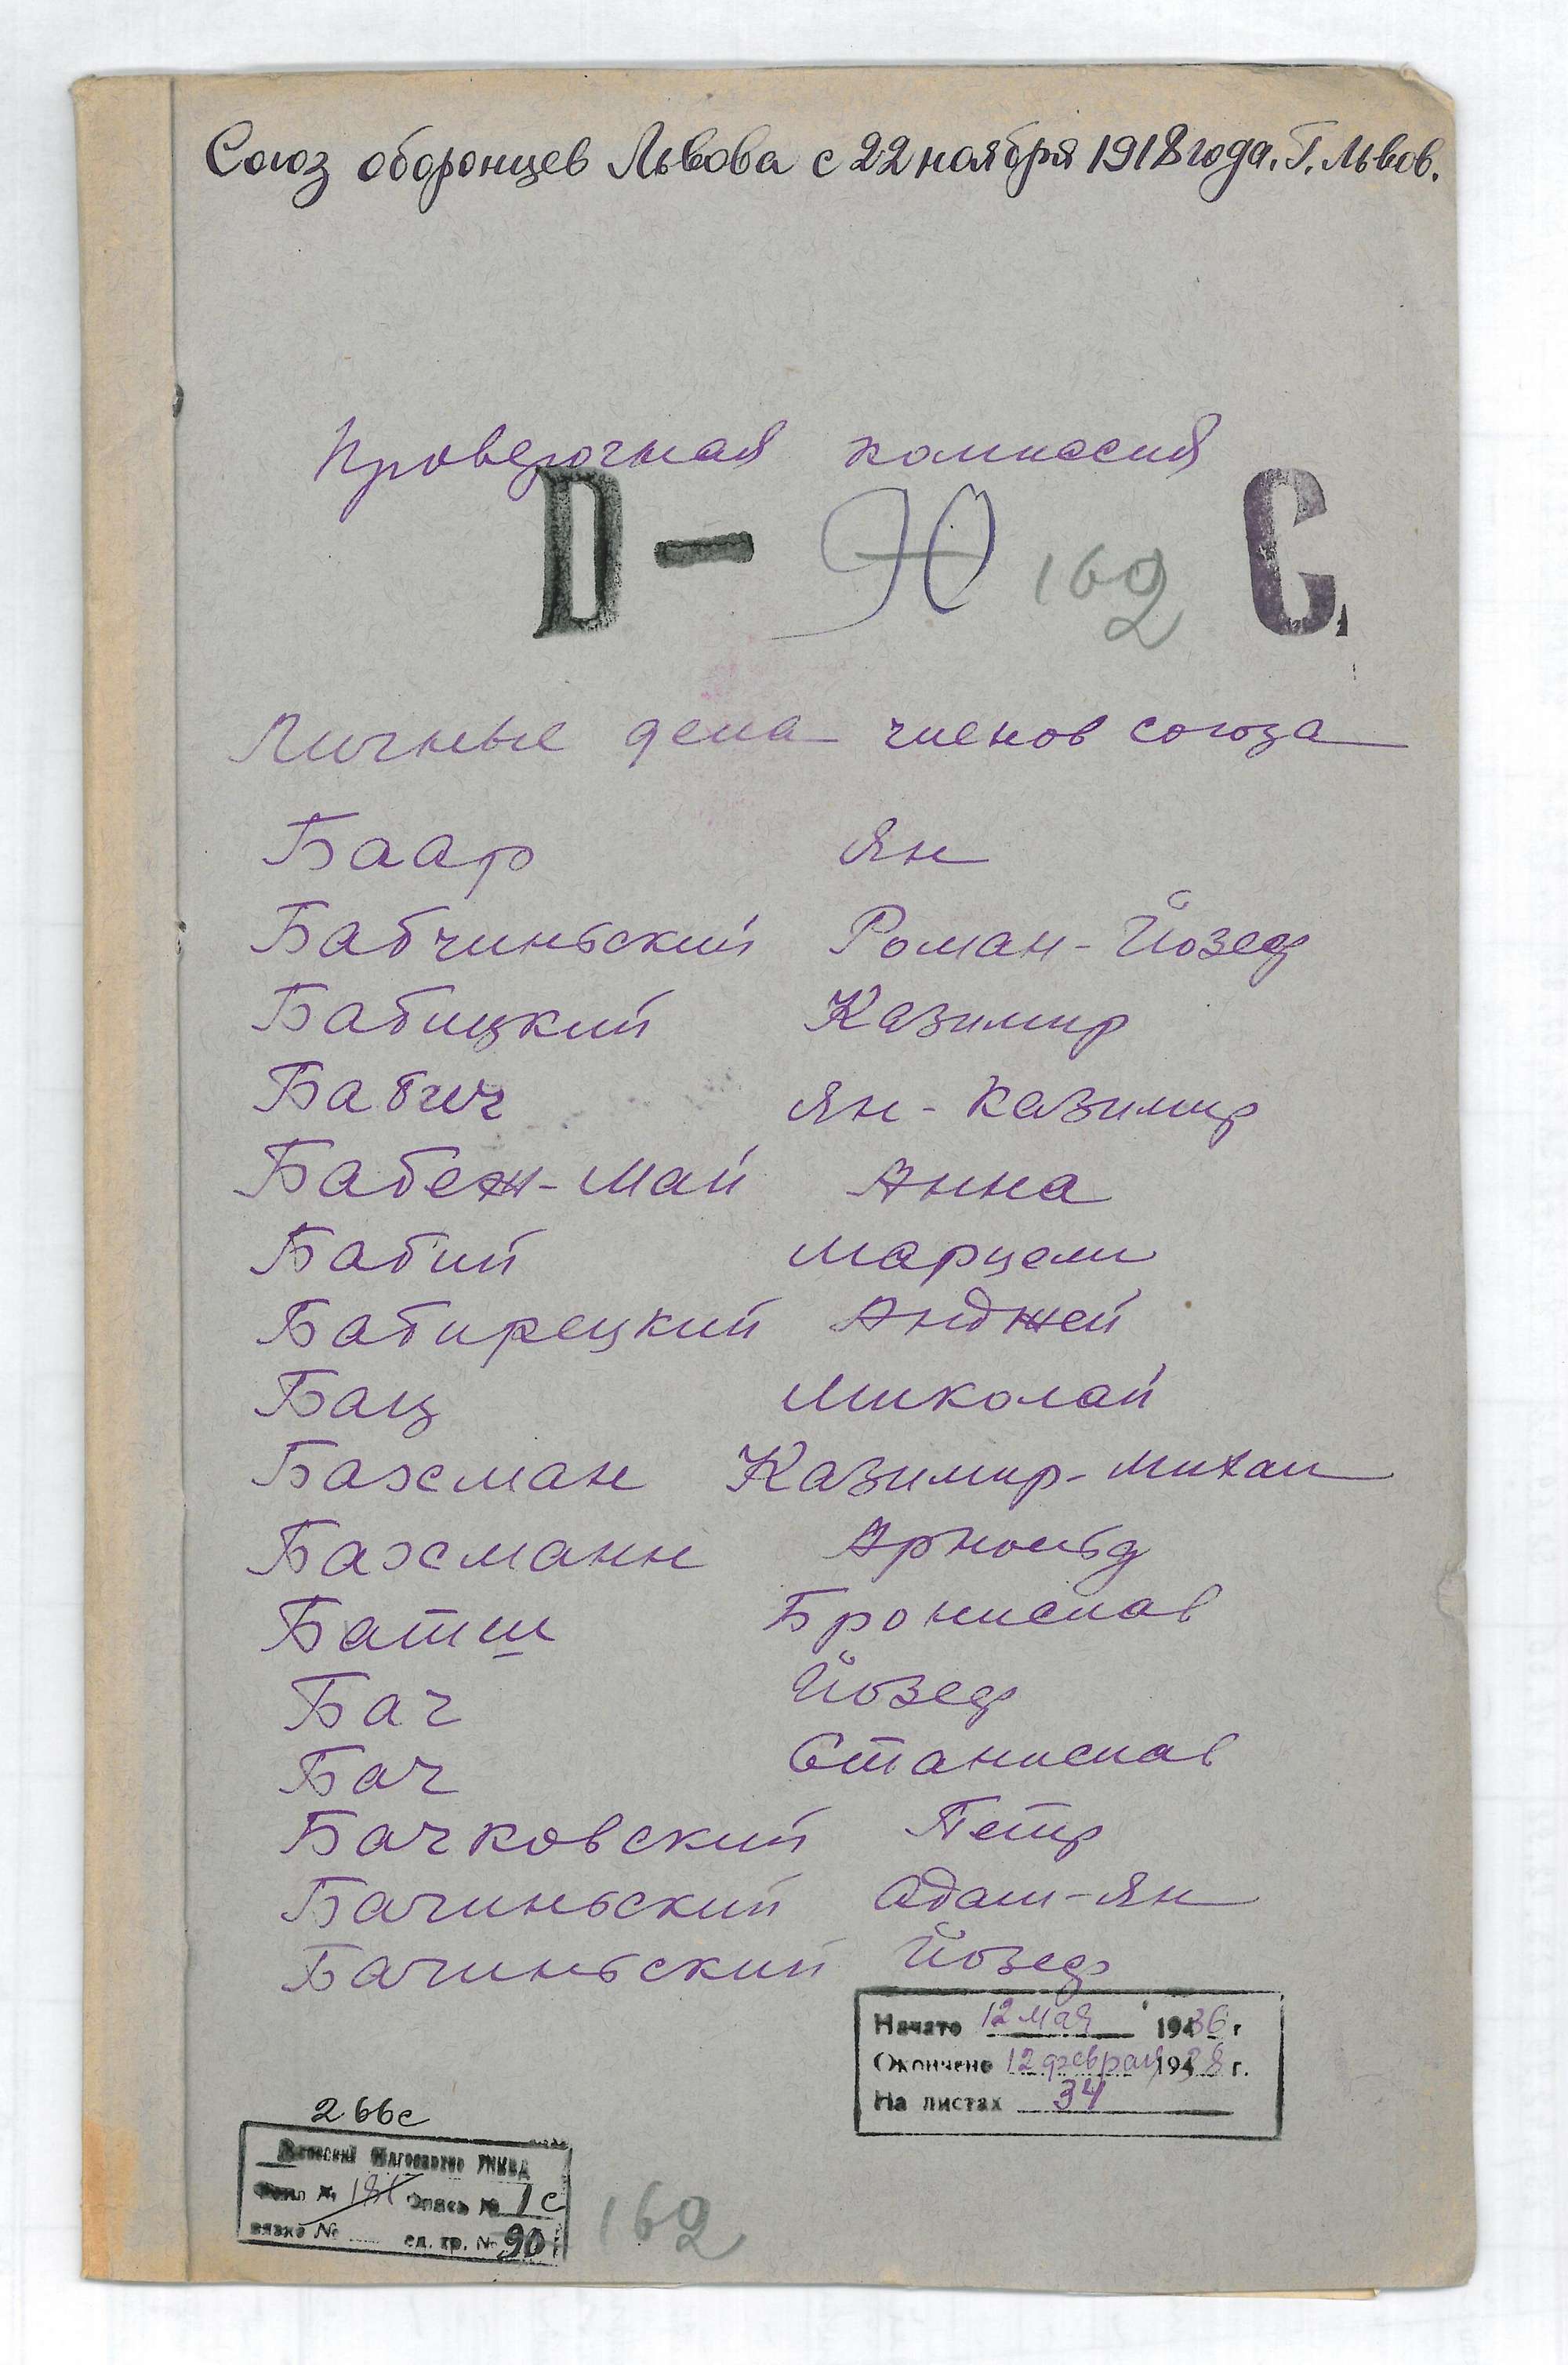 Союз оборонцев Львова с 22 ноября 1918 года. Г. Львов.
Проверочная комиссия
D – 90 162 С.
Личные дела членов союза
Баар Ян
Бабчиньский Роман-Йозеф
Бабицкий Казимир
Бабич Ян-Казимир
Бабеж-Май Анна
Бабий Марцели
Бабирецкий Анджей
Бац Миколай
Бахман Казимир-Михал
Бахманн Арнольд
Батш Бронислав
Бач Йозеф
Бач Станислав
Бачковский Петр
Бачиньский Адам-Ян
Бачиньский Йозеф
Начато 12 мая 1936 г
Окончено 12 феврал 1938 г.
На листах 34
266с
Львовский УНКВД
Фонд № 181 Опись № 1с
вязка № ед. хр. № 90
162